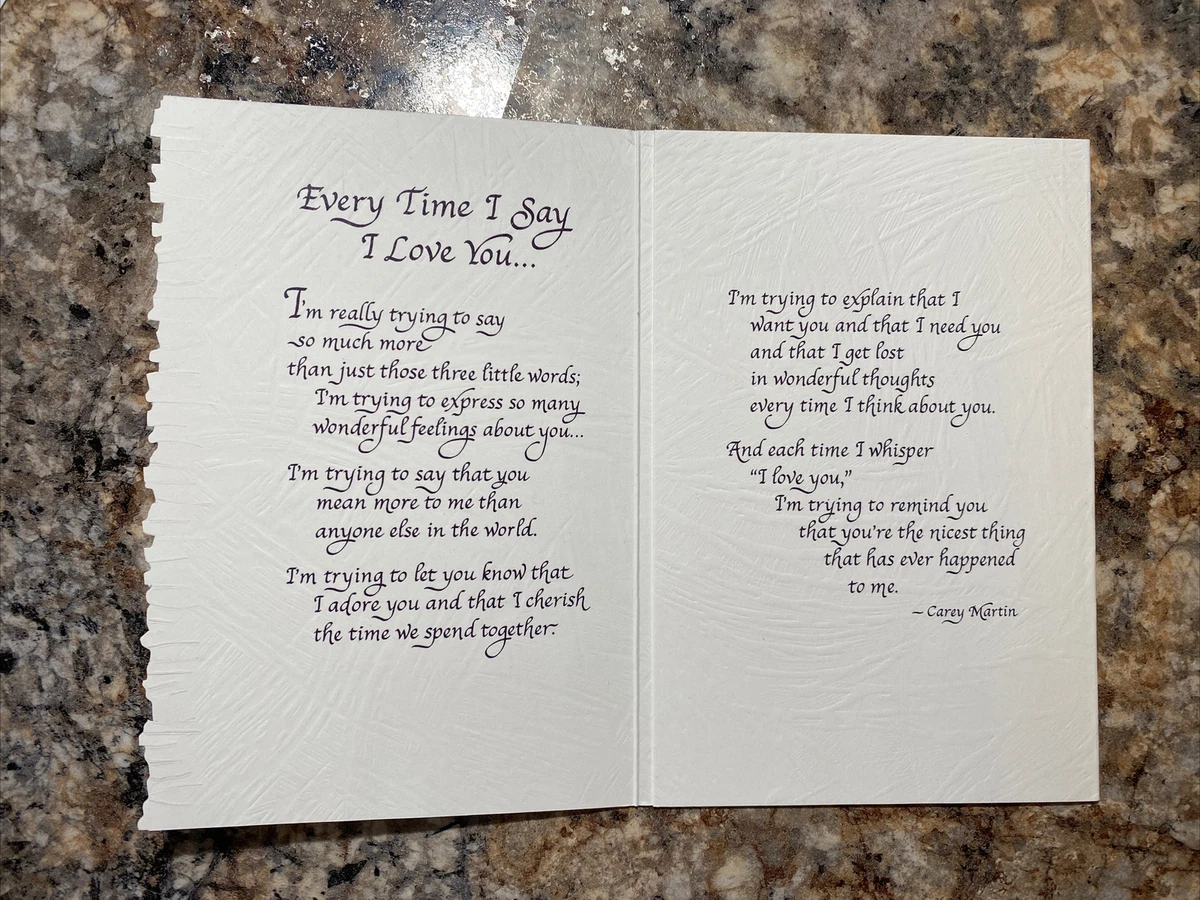 Every Time I Say
I Love You...
I'm really trying to say
so much more
than just those three little words;
I'm trying to express so many
wonderful feelings about you...
I'm trying to say that you
mean more to me than
anyone else in the world.
I'm trying to let you know that
I adore you and that I cherish
the time we spend together.
I'm trying to explain that I
want you and that I need you
and that I get lost
in wonderful thoughts
every time I think about you.
And each time I whisper
“I love you,”
I'm trying to remind you
that you're the nicest thing
that has ever happened
to me.
– Carey Martin